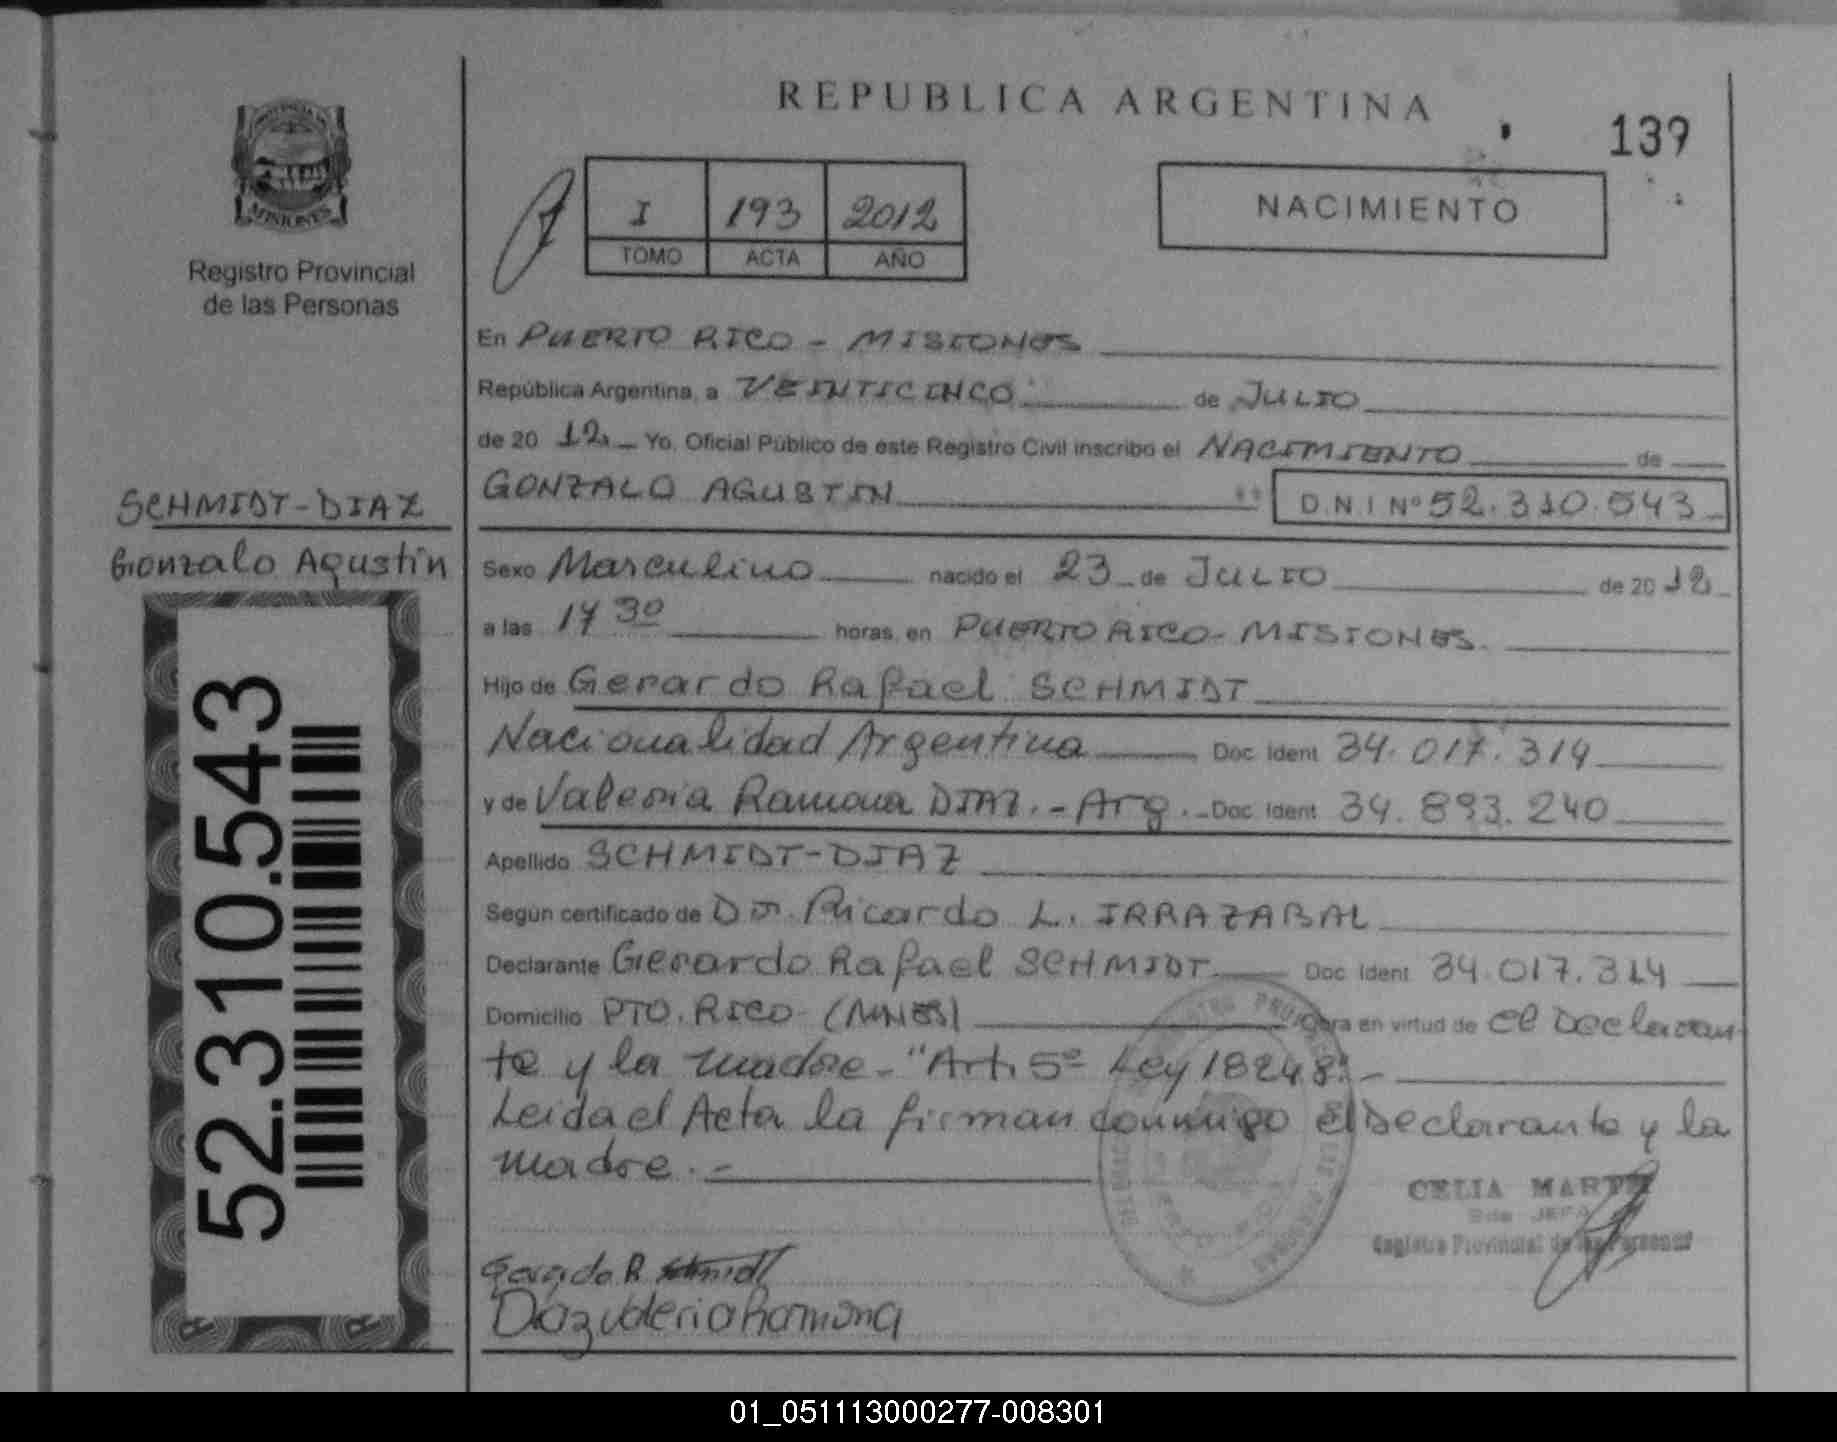 REPUBLICA ARGENTINA
139
MISIONES
Registro Provincial
de las Personas
I 193 2012
TOMO ACTA AÑO
NACIMIENTO
En PUERTO RICO - MISIONES
República Argentina, a VEINTICINCO de JULIO
de 20 12 Yo, Oficial Público de este Registro Civil inscribo el NACIMIENTO de
GONZALO AGUSTIN D.N.I Nº 52.310.543
SCHMIDT-DIAZ
Gonzalo Agustín
Sexo Masculino nacido el 23 de JULIO de 20 12
a las 17 30 horas, en PUERTO RICO - MISIONES.
Hijo de Gerardo Rafael SCHMIDT
Nacionalidad Argentina Doc. Ident. 34.017.314
y de Valeria Ramona DIAZ.- Arg.- Doc. Ident. 34.893.240
Apellido SCHMIDT-DIAZ
Según certificado de Dr. Ricardo L. IRRAZABAL
Declarante Gerardo Rafael SCHMIDT Doc. Ident. 34.017.314
Domicilio PTO. RICO - (MNES) Obra en virtud de el Declaran-
te y la madre - "Art. 5º Ley 18248".-
Leida el Acta la firman conmigo el Declarante y la
madre.-
52.310.543
CELIA
Registro Provincial de las Personas
Gerardo R Schmidt
Diaz Valeria Ramona
01_051113000277-008301